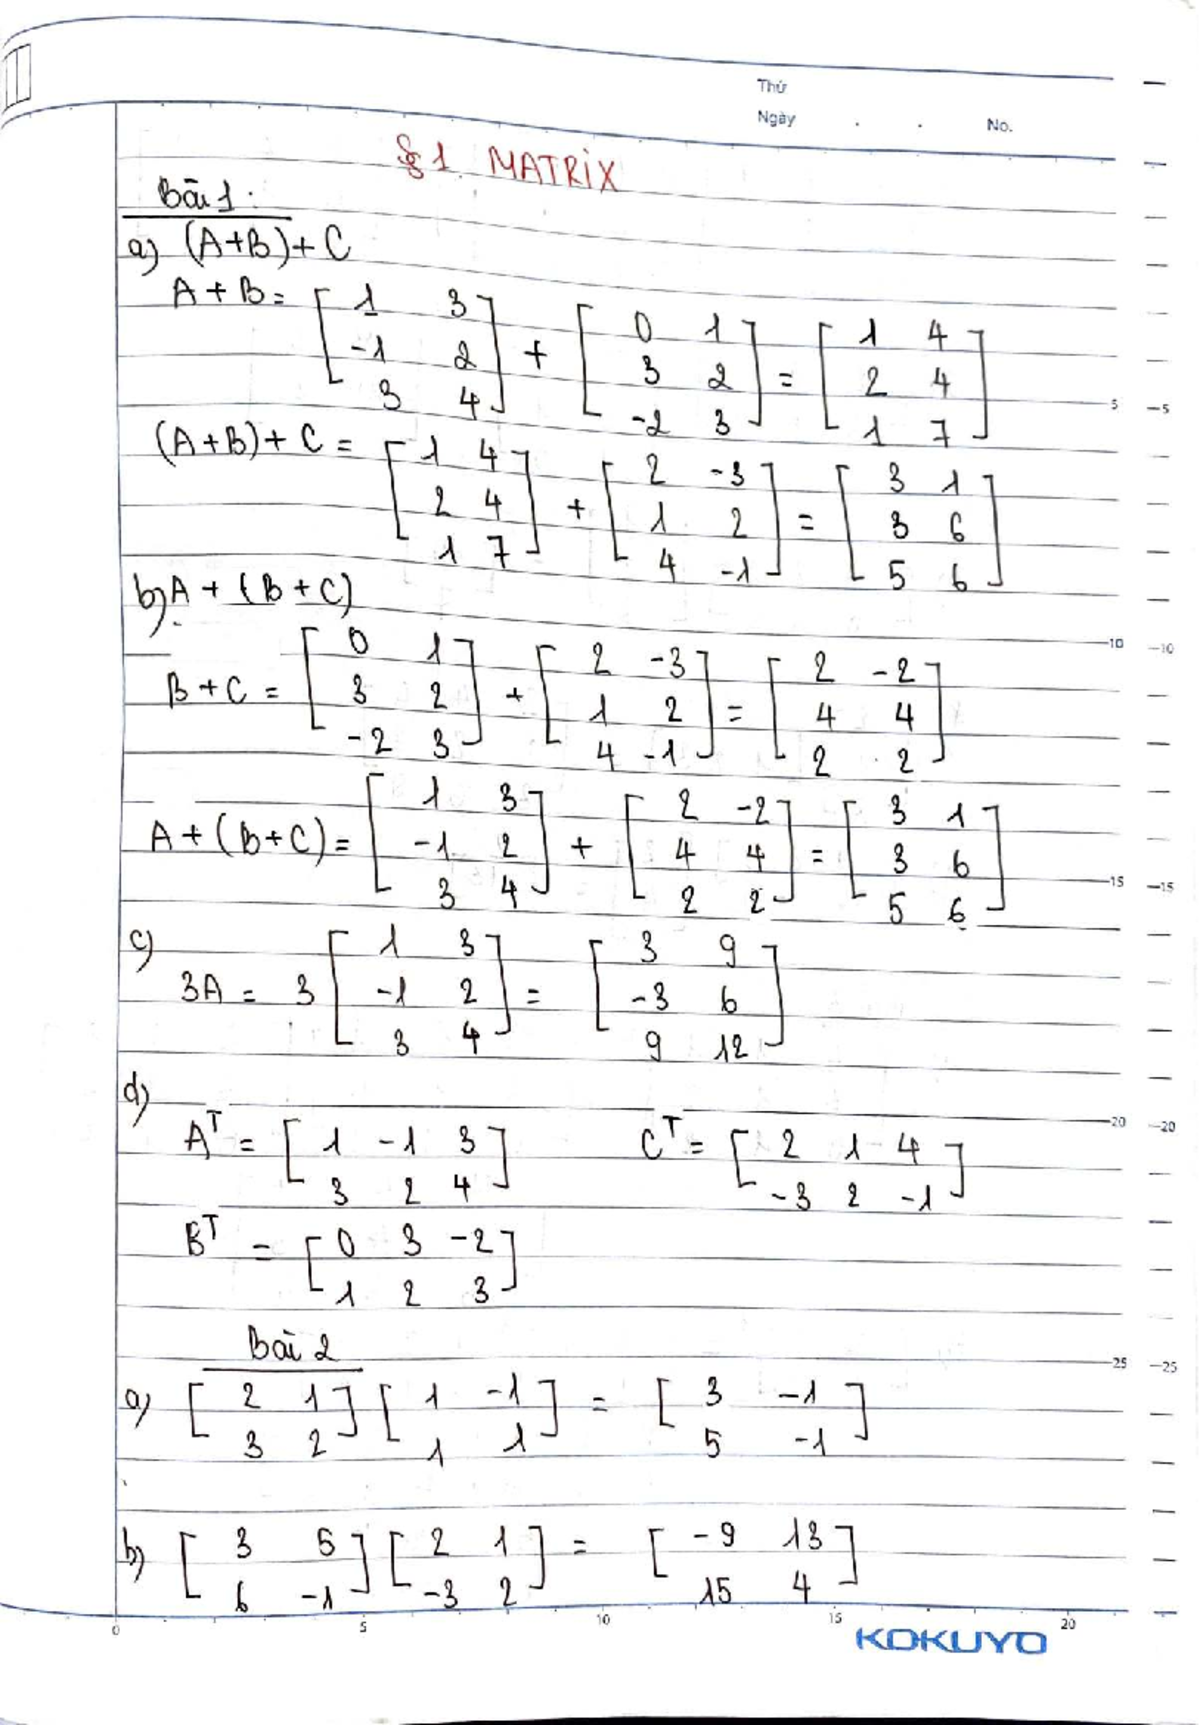 Thứ
Ngày . . No.
§1. MATRIX
Bài 1:
a) (A+B)+C
A+B = [1 3; -1 2; 3 4] + [0 1; 3 2; -2 3] = [1 4; 2 4; 1 7]
(A+B)+C = [1 4; 2 4; 1 7] + [2 -3; 1 2; 4 -1] = [3 1; 3 6; 5 6]
b) A + (B+C)
B+C = [0 1; 3 2; -2 3] + [2 -3; 1 2; 4 -1] = [2 -2; 4 4; 2 2]
A+(B+C) = [1 3; -1 2; 3 4] + [2 -2; 4 4; 2 2] = [3 1; 3 6; 5 6]
c)
3A = 3 [1 3; -1 2; 3 4] = [3 9; -3 6; 9 12]
d)
A^T = [1 -1 3; 3 2 4] C^T = [2 1 4; -3 2 -1]
B^T = [0 3 -2; 1 2 3]
Bài 2
a) [2 1; 3 2] [1 -1; 1 1] = [3 -1; 5 -1]
b) [3 5; 6 -1] [2 1; -3 2] = [-9 13; 15 4]
5 5
10 10
15 15
20 20
25 25
0 5 10 15 20
KOKUYO